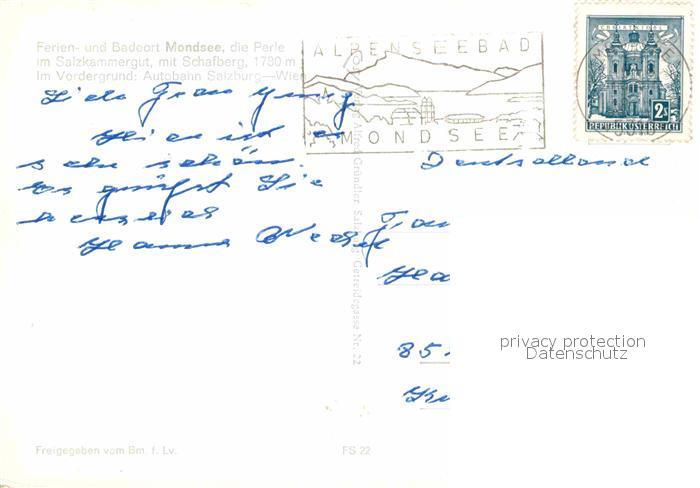 Ferien- und Badeort Mondsee, die Perle
im Salzkammergut, mit Schafberg, 1780 m
Im Vordergrund: Autobahn Salzburg—Wien
ALPENSEEBAD
MONDSEE
CHRISTKINDL
2S
REPUBLIK ÖSTERREICH
Liebe Frau
Hier ist
sehr schön.
Es grüßt Sie
Hanna
Deutschland
Frau
85
Alfred Gründler, Salzburg, Getreidegasse Nr. 22
privacy protection
Datenschutz
Freigegeben vom Bm. f. Lv.
FS 22